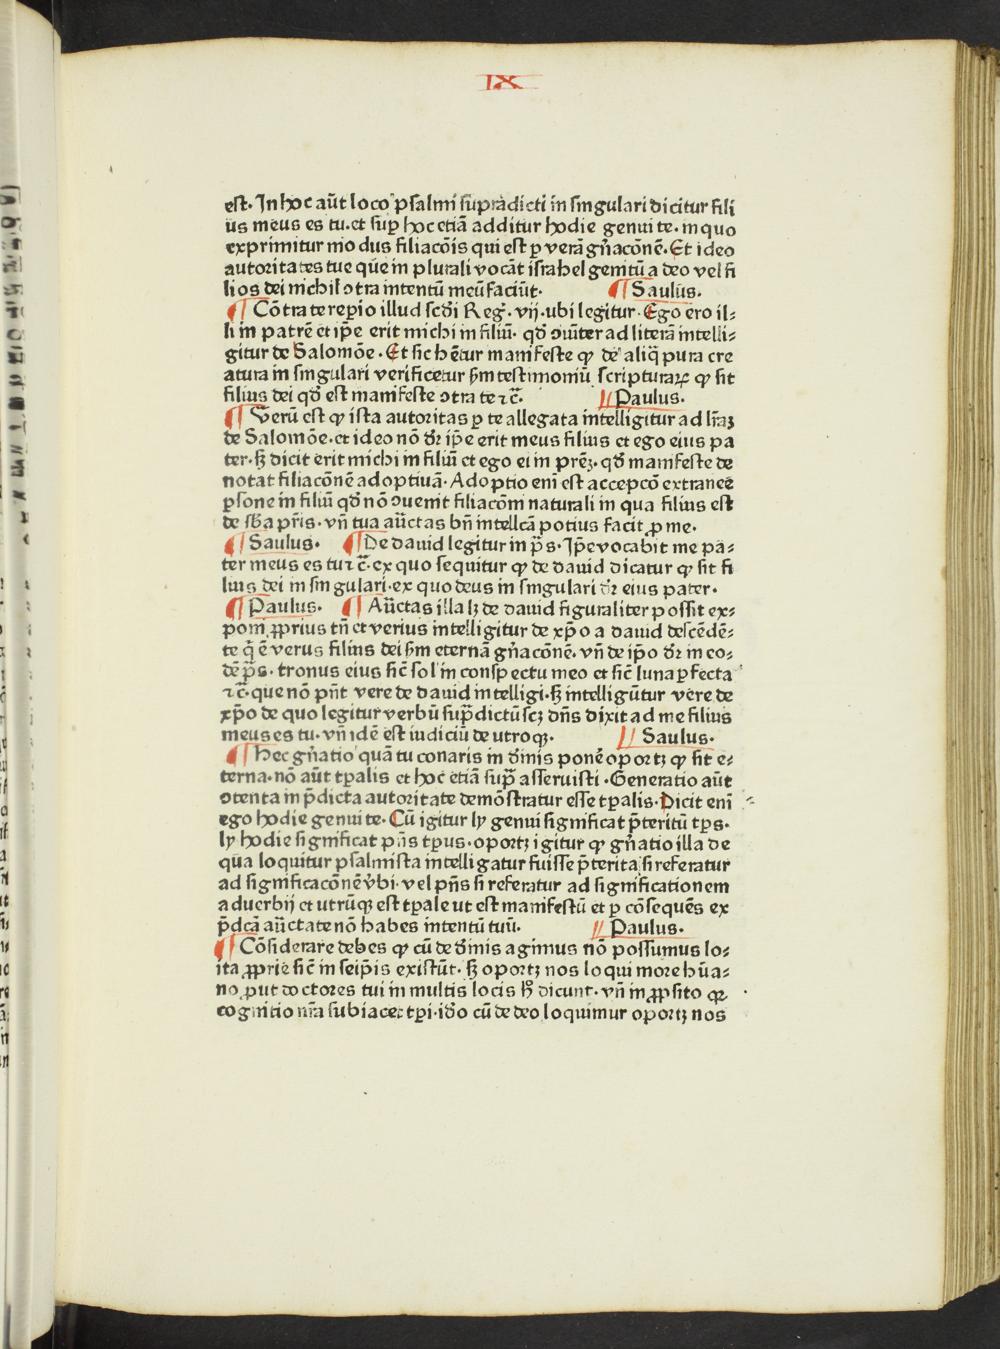 IX
est. In hoc aūt loco psalmi supradicti in singulari dicitur fili
us meus es tu. et sup̱ hoc etiā additur hodie genui te. in quo
exprimitur modus filiacōis qui est ꝑ verā gn̄acōnē. Et ideo
autoritates tue que in plurali vocāt israhel genitū a deo vel fi
lios dei nichil ↄtra intentū meū faciūt. ¶ Saulus.
¶ Cōtra te reperio illud scd̄i Reg. vij. ubi legitur. Ego ero il⸗
li in patrē et ip̄e erit michi in filiū. qd̄ ↄiūter ad literā intelli⸗
gitur de Salomōe. Et sic hētur manifeste ꝙ de aliq̄ pura cre
atura in singulari verificetur ẜm testimoniū scripturaꝝ ꝙ sit
filius dei qd̄ est manifeste ↄtra te ⁊c̄. // Paulus.
¶ Verū est ꝙ ista autoritas ꝑ te allegata intelligitur ad lr̄aꝫ
de Salomōe. et ideo nō dr̄ ip̄e erit meus filius et ego eius pa
ter. ẜꝫ dicit erit michi in filiū et ego ei in prēꝫ. qd̄ manifeste de
notat filiacōnē adoptiuā. Adoptio enī est accepcō extranee
ꝑsone in filiū qd̄ nō ↄuenit filiacōni naturali in qua filius est
de sb̄a pr̄is. vn̄ tua au̅ctas bn̄ intellcā potius facit ꝓ me.
¶ Saulus. ¶ De dauid legitur in p̄s. Ip̄e vocabit me pa⸗
ter meus es tu ⁊c̄. ex quo sequitur ꝙ de dauid dicatur ꝙ sit fi
lius dei in singulari. ex quo deus in singulari dr̄ eius pater.
¶ Paulus. ¶ Au̅ctas illa lꝫ de dauid figuraliter possit ex⸗
poni ꝓprius tn̄ et verius intelligitur de xp̄o a dauid descēdē⸗
te q̇ ē verus filius dei ẜm eternā gn̄acōnē. vn̄ de ip̄o dr̄ in eo⸗
dē p̄s. tronus eius sic̄ sol in conspectu meo et sic̄ luna ꝑfecta
⁊c̄. que nō pn̄t vere de dauid intelligi. ẜꝫ intelligūtur vere de
xp̄o de quo legitur verbū sup̄dictū scꝫ dn̄s dixit ad me filius
meus es tu. vn̄ idē est iudiciū de utroqꝫ. // Saulus.
¶ Hec gn̄atio quā tu conaris in diuinis ponē oportꝫ ꝙ sit e⸗
terna. nō aūt tꝑalis et hoc etiā sup̄ asseruisti. Generatio aūt
ↄtenta in p̄dicta autoritate demōstratur esse tꝑalis. Dicit enī
ego hodie genui te. Cū igitur ly genui significat p̄teritū tꝑs.
ly hodie significat pn̄s tꝑus. oportꝫ igitur ꝙ gn̄atio illa de
qua loquitur psalmista intelligatur fuisse p̄terita si referatur
ad significacōnē v̄bi. vel pn̄s si referatur ad significationem
aduerbij et utrūqꝫ est tꝑale ut est manifestū et ꝑ cōsequēs ex
p̄dcā au̅ctate nō habes intentū tuū. // Paulus.
¶ Cōsiderare debes ꝙ cū de diuinis agimus nō possumus lo⸗
ita ꝓprie sic̄ in seip̄is existūt. ẜꝫ oportꝫ nos loqui more hūa⸗
no ꝓut doctores tui in multis locis h̄ dicunt. vn̄ in ꝓposito qꝛ
cognitio nr̄a subiacet tꝑi. iđo cū de deo loquimur oportꝫ nos